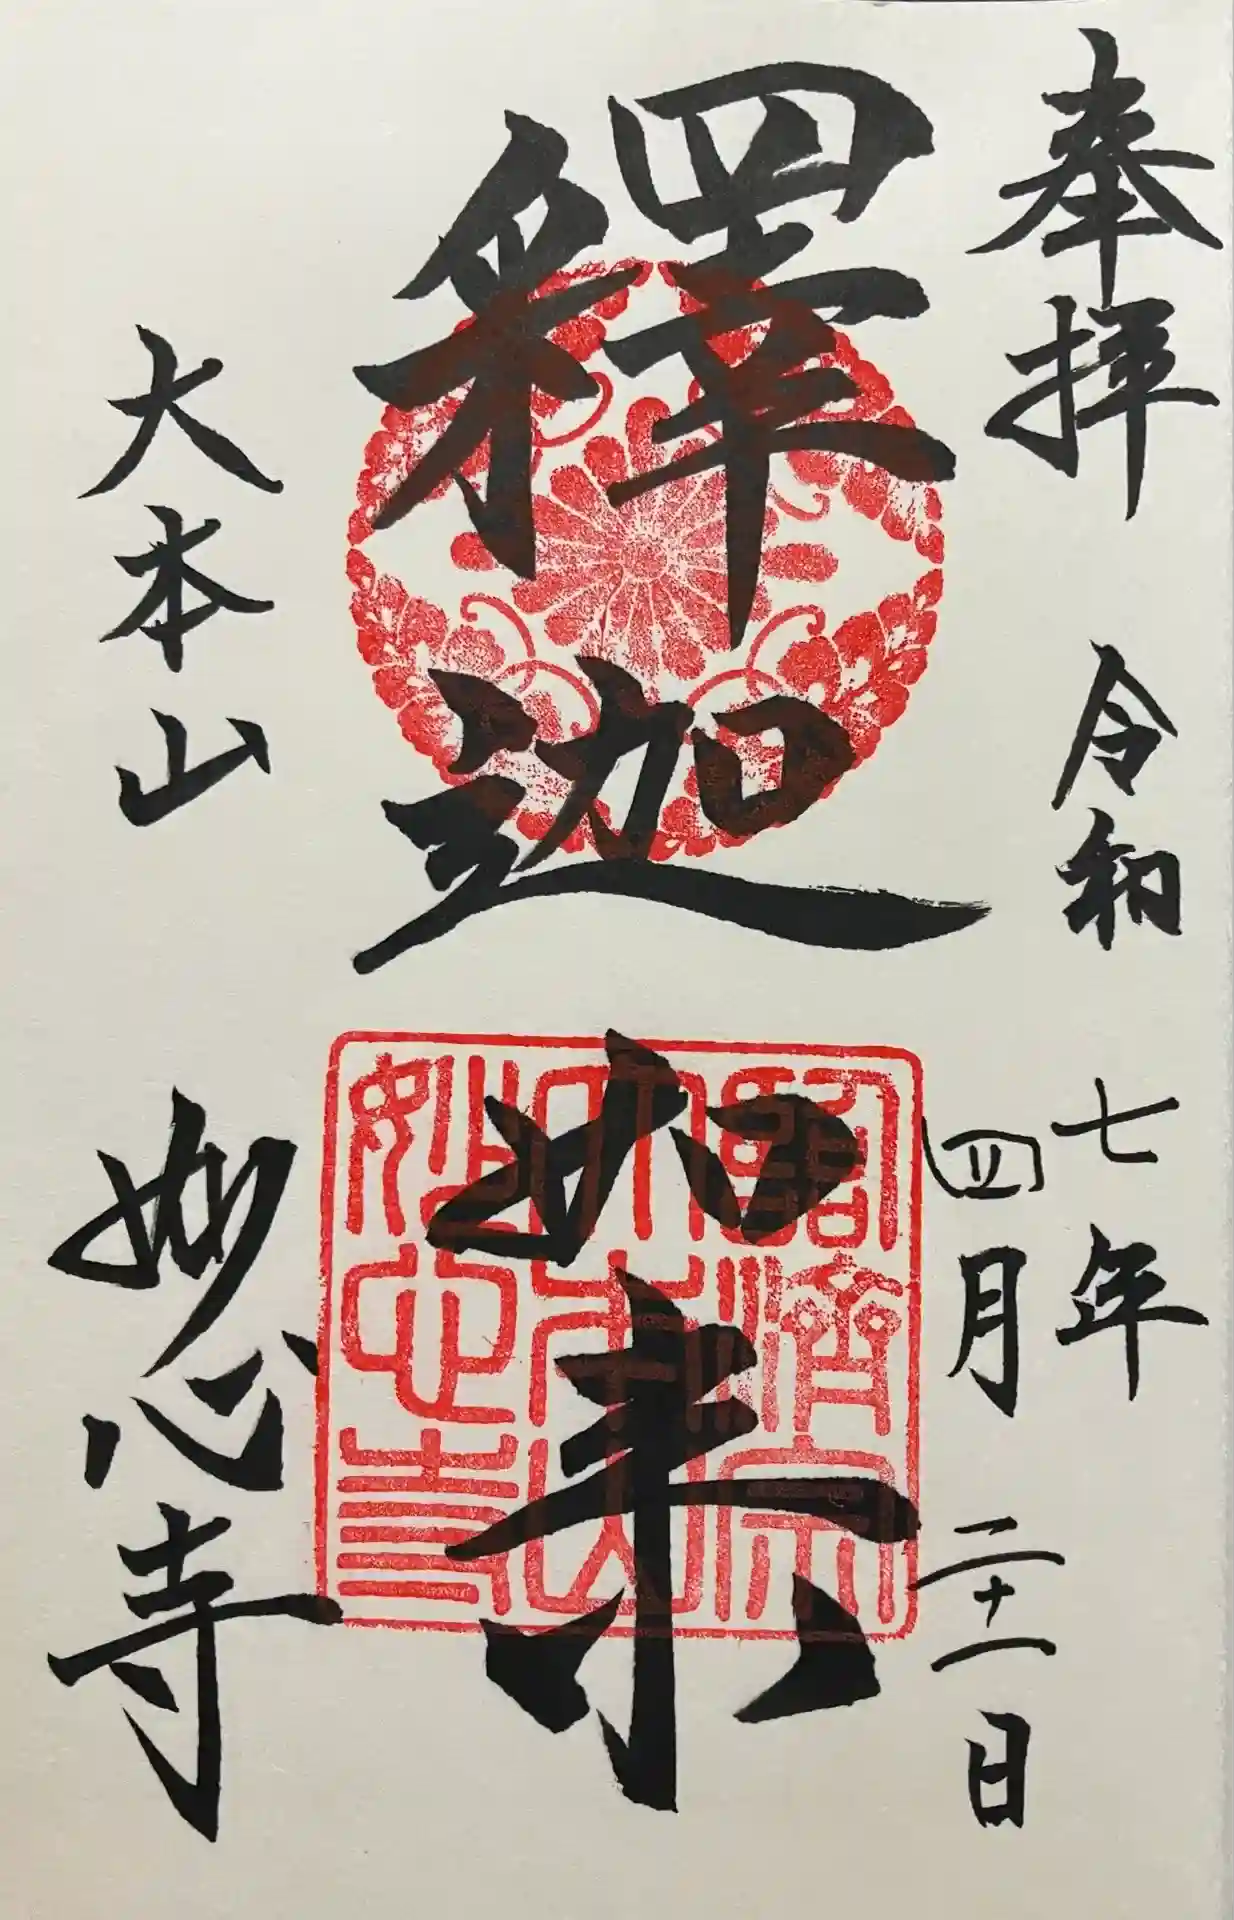 奉拝 令和 七年
四月 二十一日
釋迦如来
臨濟宗
大本山
妙心寺
大本山 妙心寺